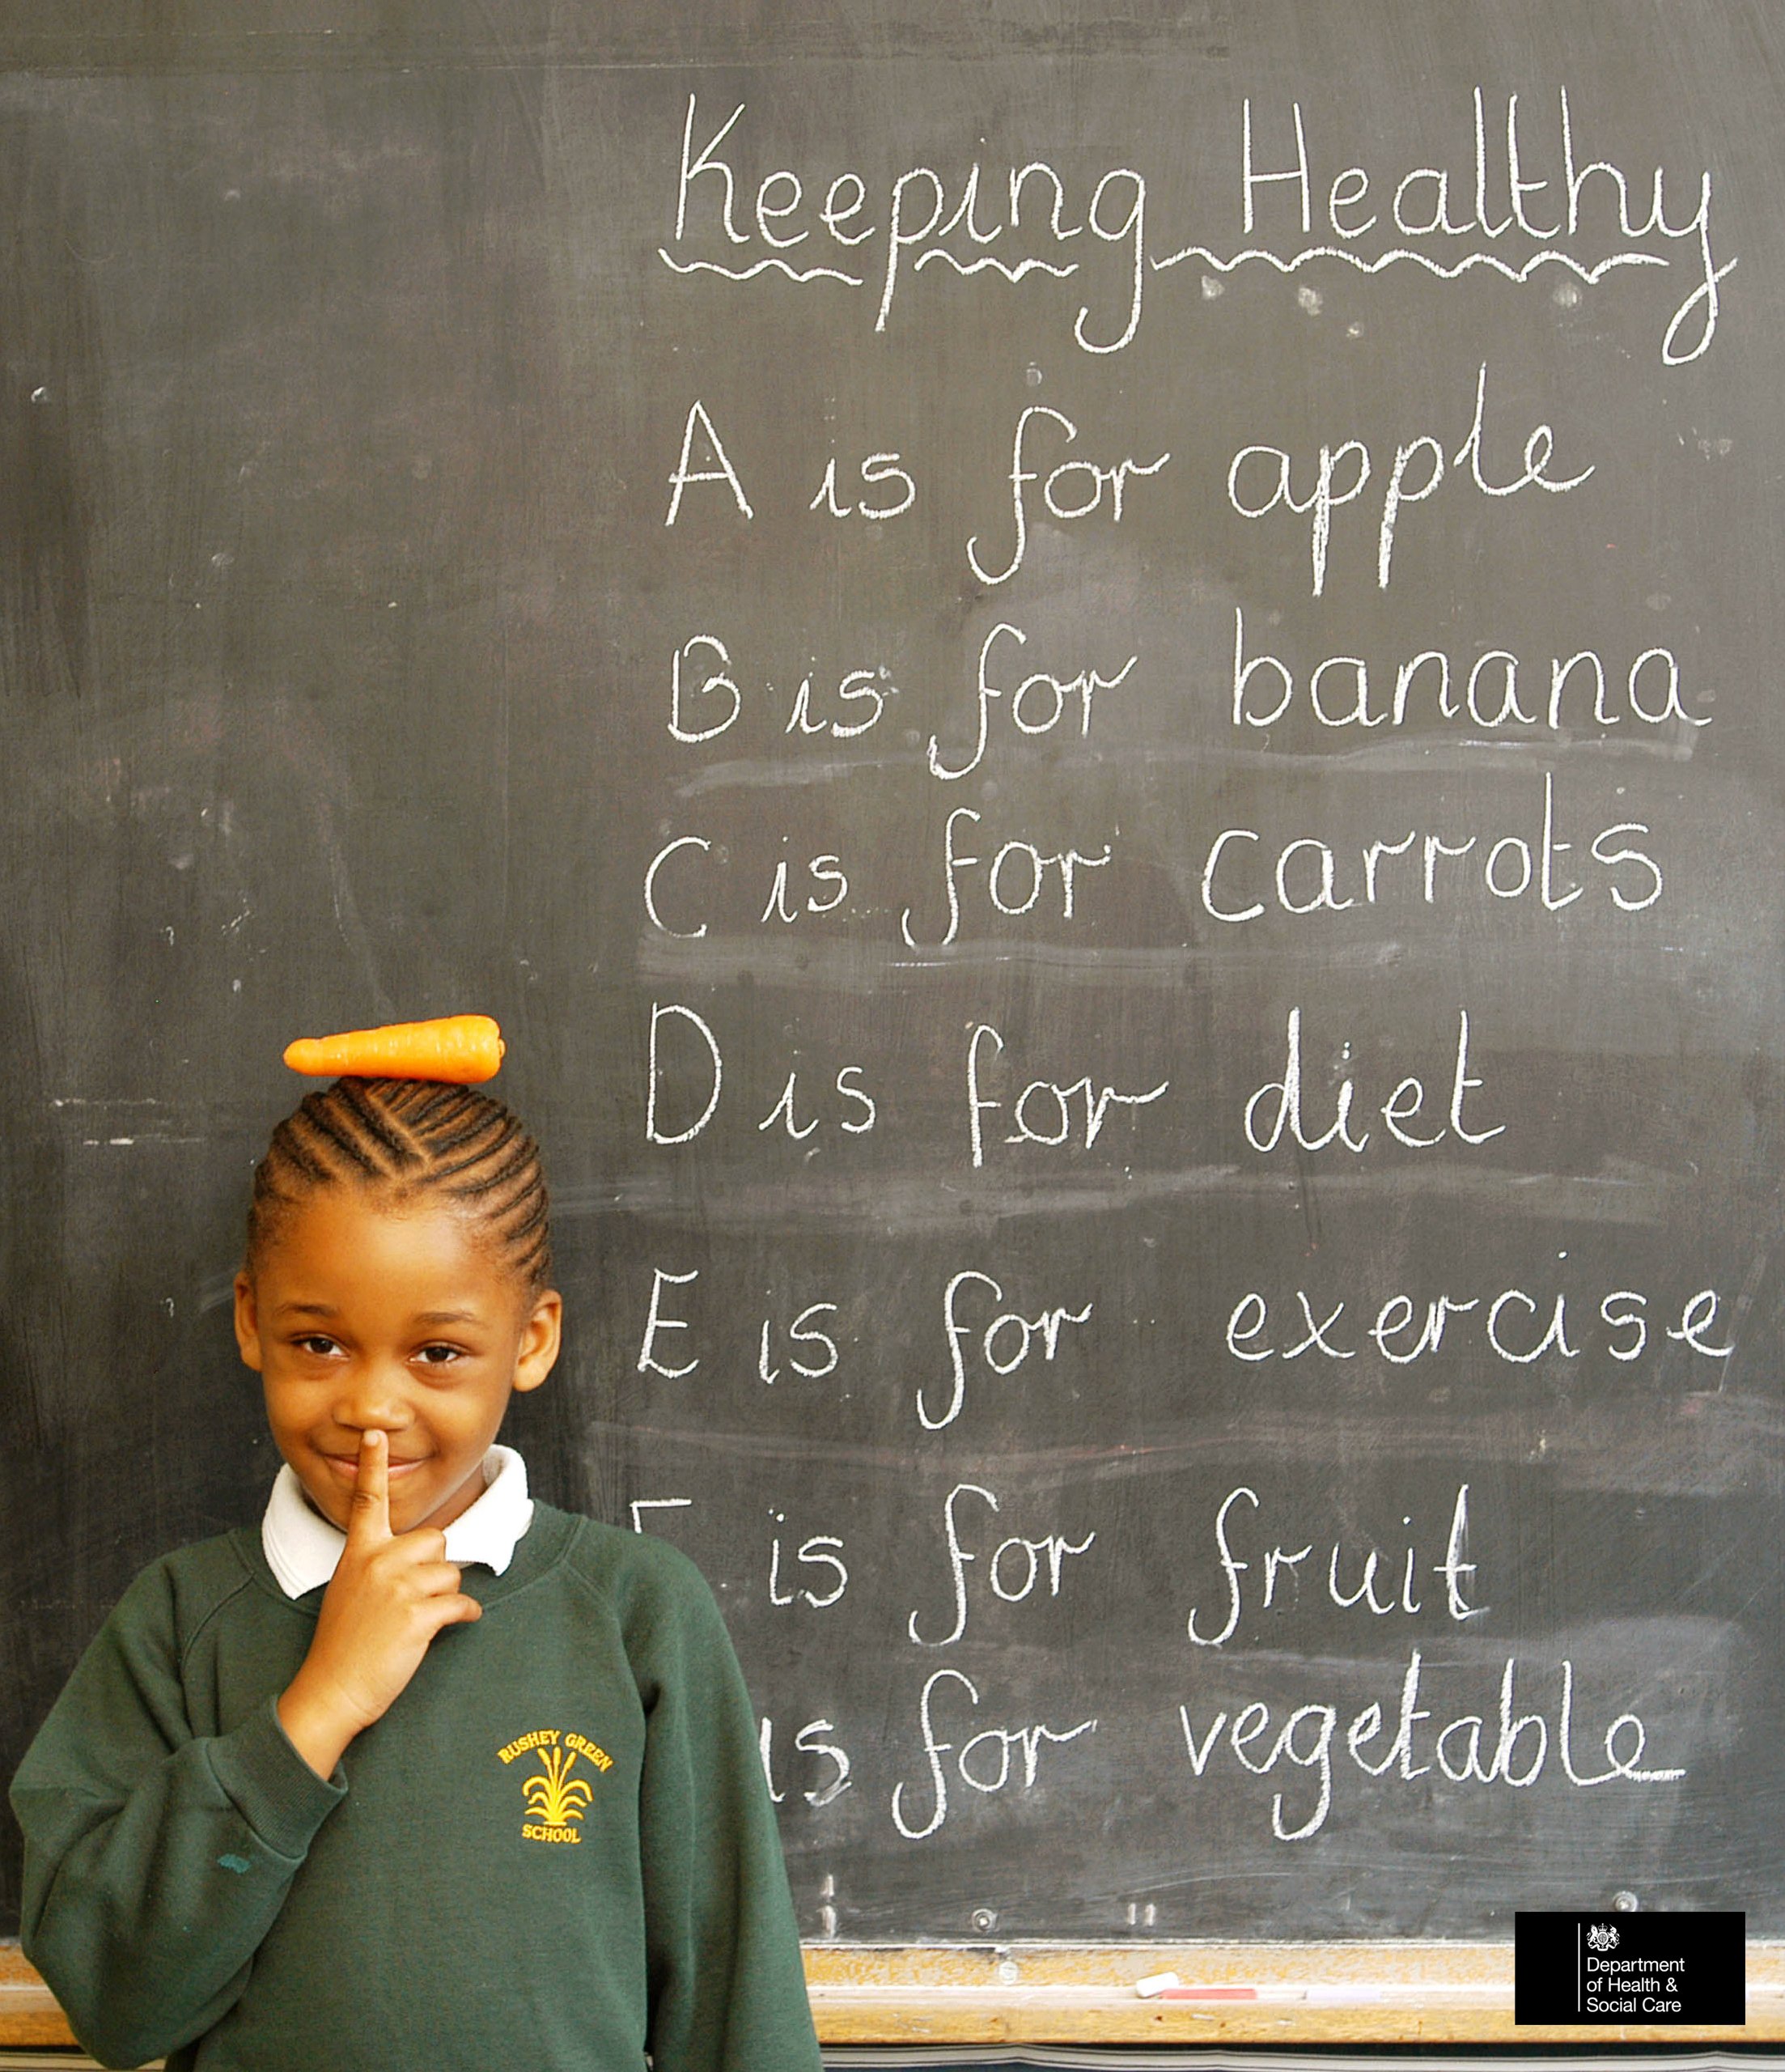 Keeping Healthy
A is for apple
B is for banana
C is for carrots
D is for diet
E is for exercise
F is for fruit
is for vegetable
RUSHEY GREEN
SCHOOL
Department
of Health &
Social Care